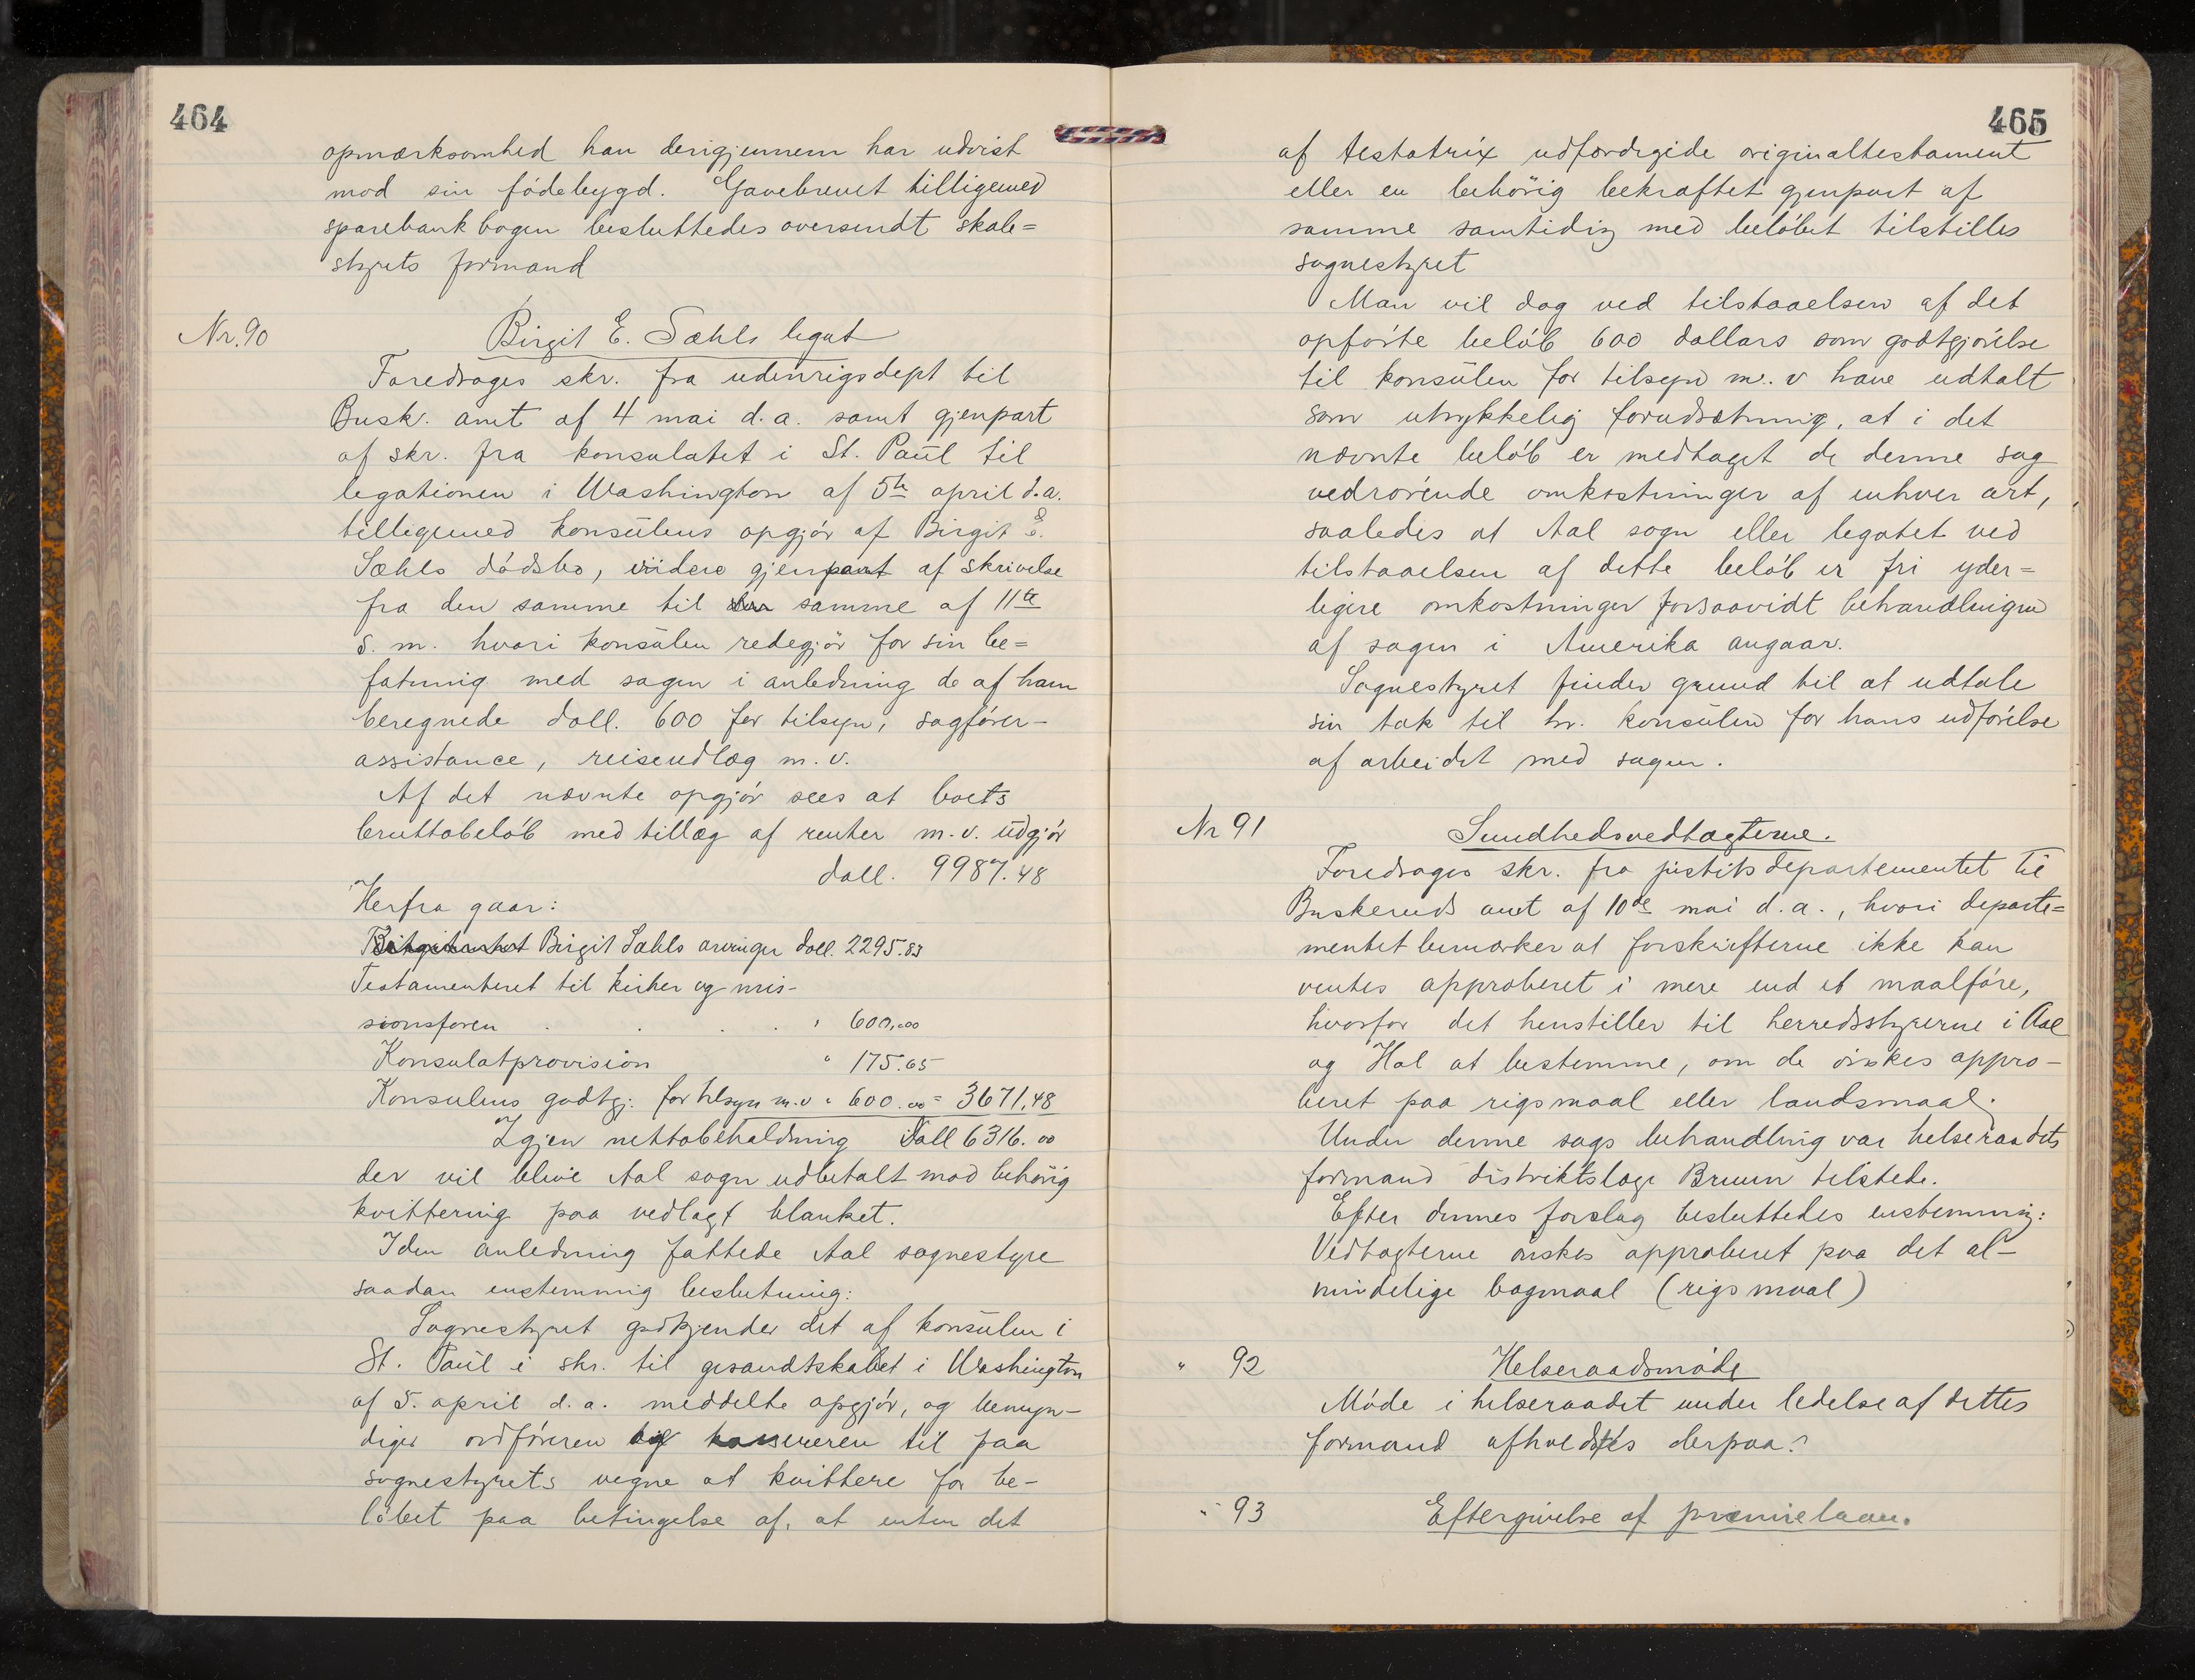 464
opmærksomhed han derigjennem har udvist
mod sin fødebygd. Gavebrevet tilligemed
sparebankbogen besluttedes oversendt skole=
styrets formand
Nr. 90
Birgit E. Sæhls legat
Foredroges skr. fra udenrigsdept til
Busk. amt af 4 mai d.a. samt gjenpart
af skr. fra konsulatet i St. Paul til
legationen i Washington af 5te april d.a.
tilligemed konsulens opgjør af Birgit E.
Sæhls dødsbo, videre gjenpart af skrivelse
fra den samme til den samme af 11te
s. m. hvori konsulen redegjør for sin be=
fatning med sagen i anledning de af ham
beregnede doll. 600 for tilsyn, sagfører-
assistance, reiseudlæg m. v.
Af det nævnte opgjør sees at boets
bruttobeløb med tillæg af renter m. v. udgjør
doll. 9987.48
Herfra gaar:
Birgit Sæhls arvinger doll. 2295.83
Testamenteret til kirker og mis-
sionsforen . . . . " 600,00
Konsulatprovision " 175.65
Konsulens godtgj. for tilsyn m.v " 600.00 = 3671,48
Igjen nettobeholdning Doll 6316.00
der vil blive Aal sogn udbetalt mod behørig
kvittering paa vedlagt blanket.
I den anledning fattede Aal sognestyre
saadan enstemmig beslutning:
Sognestyret godkjender det af konsulen i
St. Paul i skr. til gesandtskabet i Washington
af 5. april d. a. meddelte opgjør, og bemyn-
diger ordføreren og kassereren til paa
sognestyrets vegne at kvittere for be-
løbet paa betingelse af, at enten det
465
af testatrix udfærdigede originaltestament
eller en behørig bekræftet gjenpart af
samme samtidig med beløbet tilstilles
sognestyret
Man vil dog ved tilstaaelsen af det
opførte beløb 600 dollars som godtgjørelse
til konsulen for tilsyn m. v have udtalt
som utrykkelig forudsætning, at i det
nævnte beløb er medtaget de denne sag
vedrørende omkostninger af enhver art,
saaledes at Aal sogn eller legatet ved
tilstaaelsen af dette beløb er fri yder=
ligere omkostninger forsaavidt behandlingen
af sagen i Amerika angaar.
Sognestyret finder grund til at udtale
sin tak til hr. konsulen for hans udførelse
af arbeidet med sagen.
Nr 91
Sundhedsvedtægterne.
Foredroges skr. fra justitsdepartementet til
Buskeruds amt af 10de mai d. a., hvori departe=
mentet bemærker at forskrifterne ikke kan
ventes approberet i mere end et maalføre,
hvorfor det henstiller til herredsstyrerne i Aal
og Hol at bestemme, om de ønskes appro-
beret paa rigsmaal eller landsmaal.
Under denne sags behandling var helseraadets
formand distriktslæge Bruun tilstede.
Efter dennes forslag besluttedes enstemmig:
Vedtægterne ønskes approberet paa det al-
mindelige bogmaal (rigsmaal)
" 92
Helseraadsmøde
Møde i helseraadet under ledelse af dettes
formand afholdtes derpaa.
" 93
Eftergivelse af præmielaan.